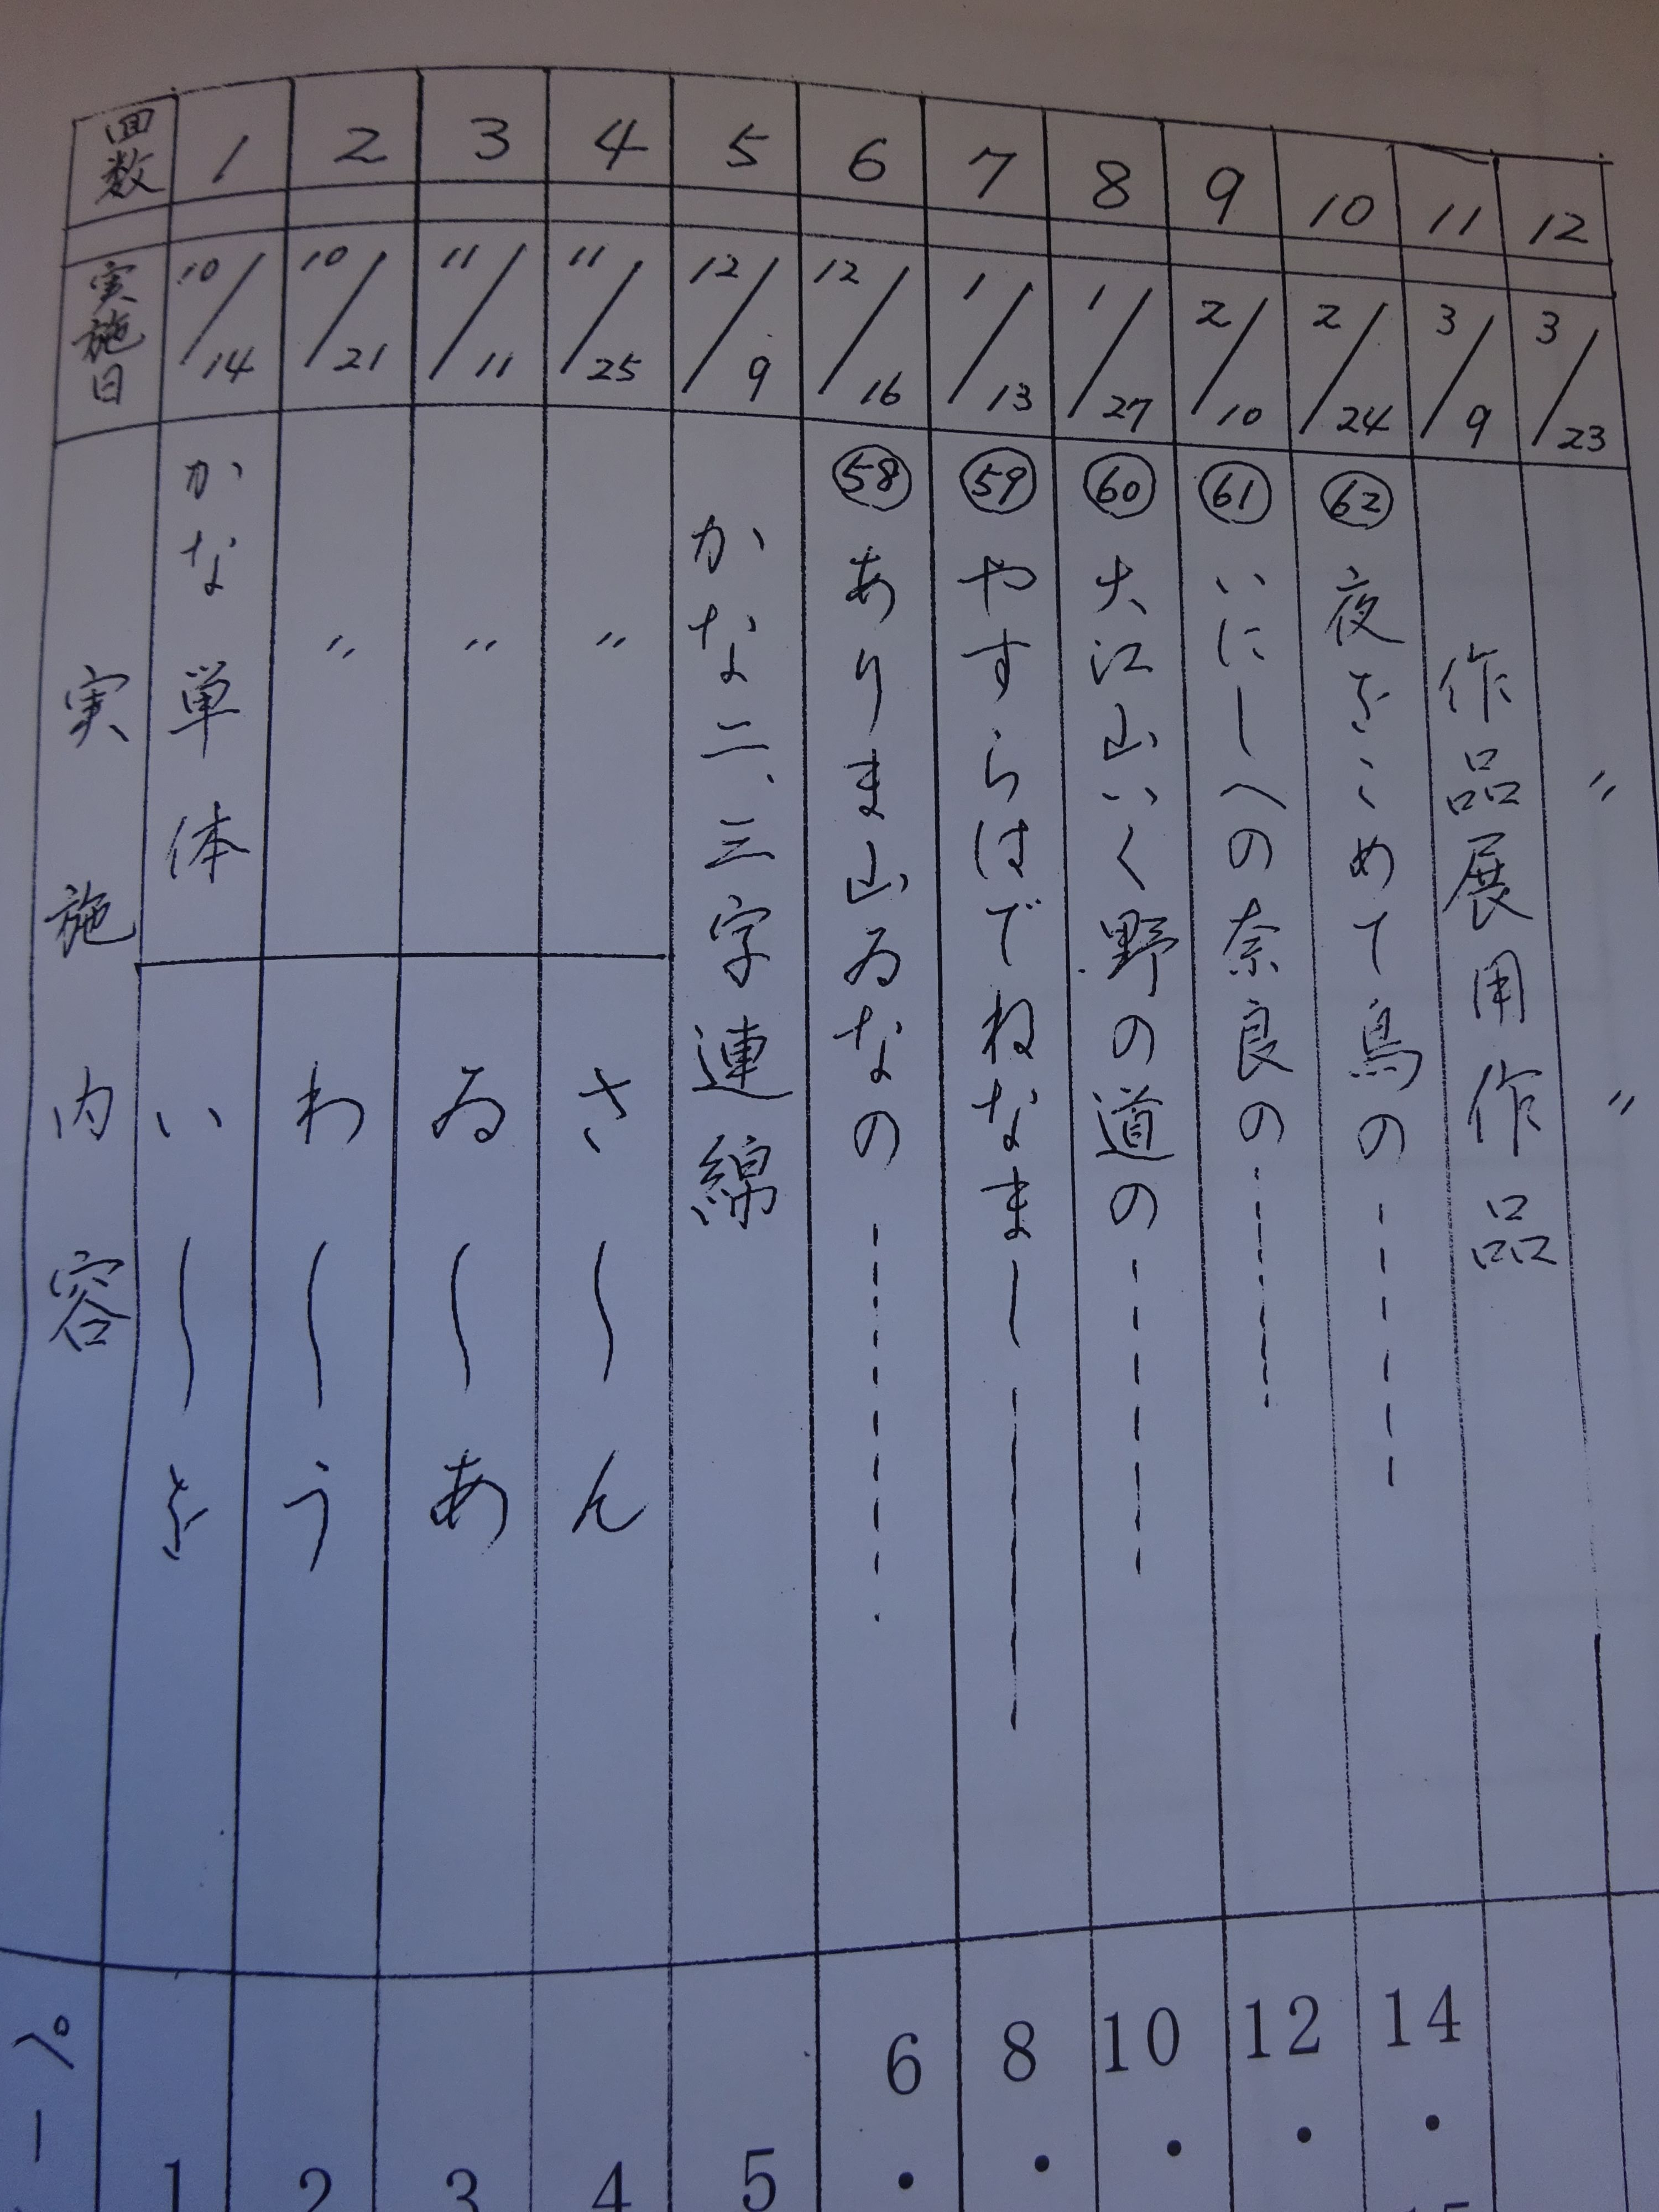 回数 1 2 3 4 5 6 7 8 9 10 11 12
実施日 10/14 10/21 11/11 11/25 12/9 12/16 1/13 1/27 2/10 2/24 3/9 3/23
実施内容
かな単体 い〜を
〃 わ〜う
〃 ゐ〜あ
〃 さ〜ん
かな二、三字連綿
㊽ありま山ゐなの
59やすらはでねなまし
60大江山いく野の道の
61いにしへの奈良の
62夜をこめて鳥の
作品展用作品
〃 〃
ペー 1 2 3 4 5 6・ 8・ 10・ 12・ 14・